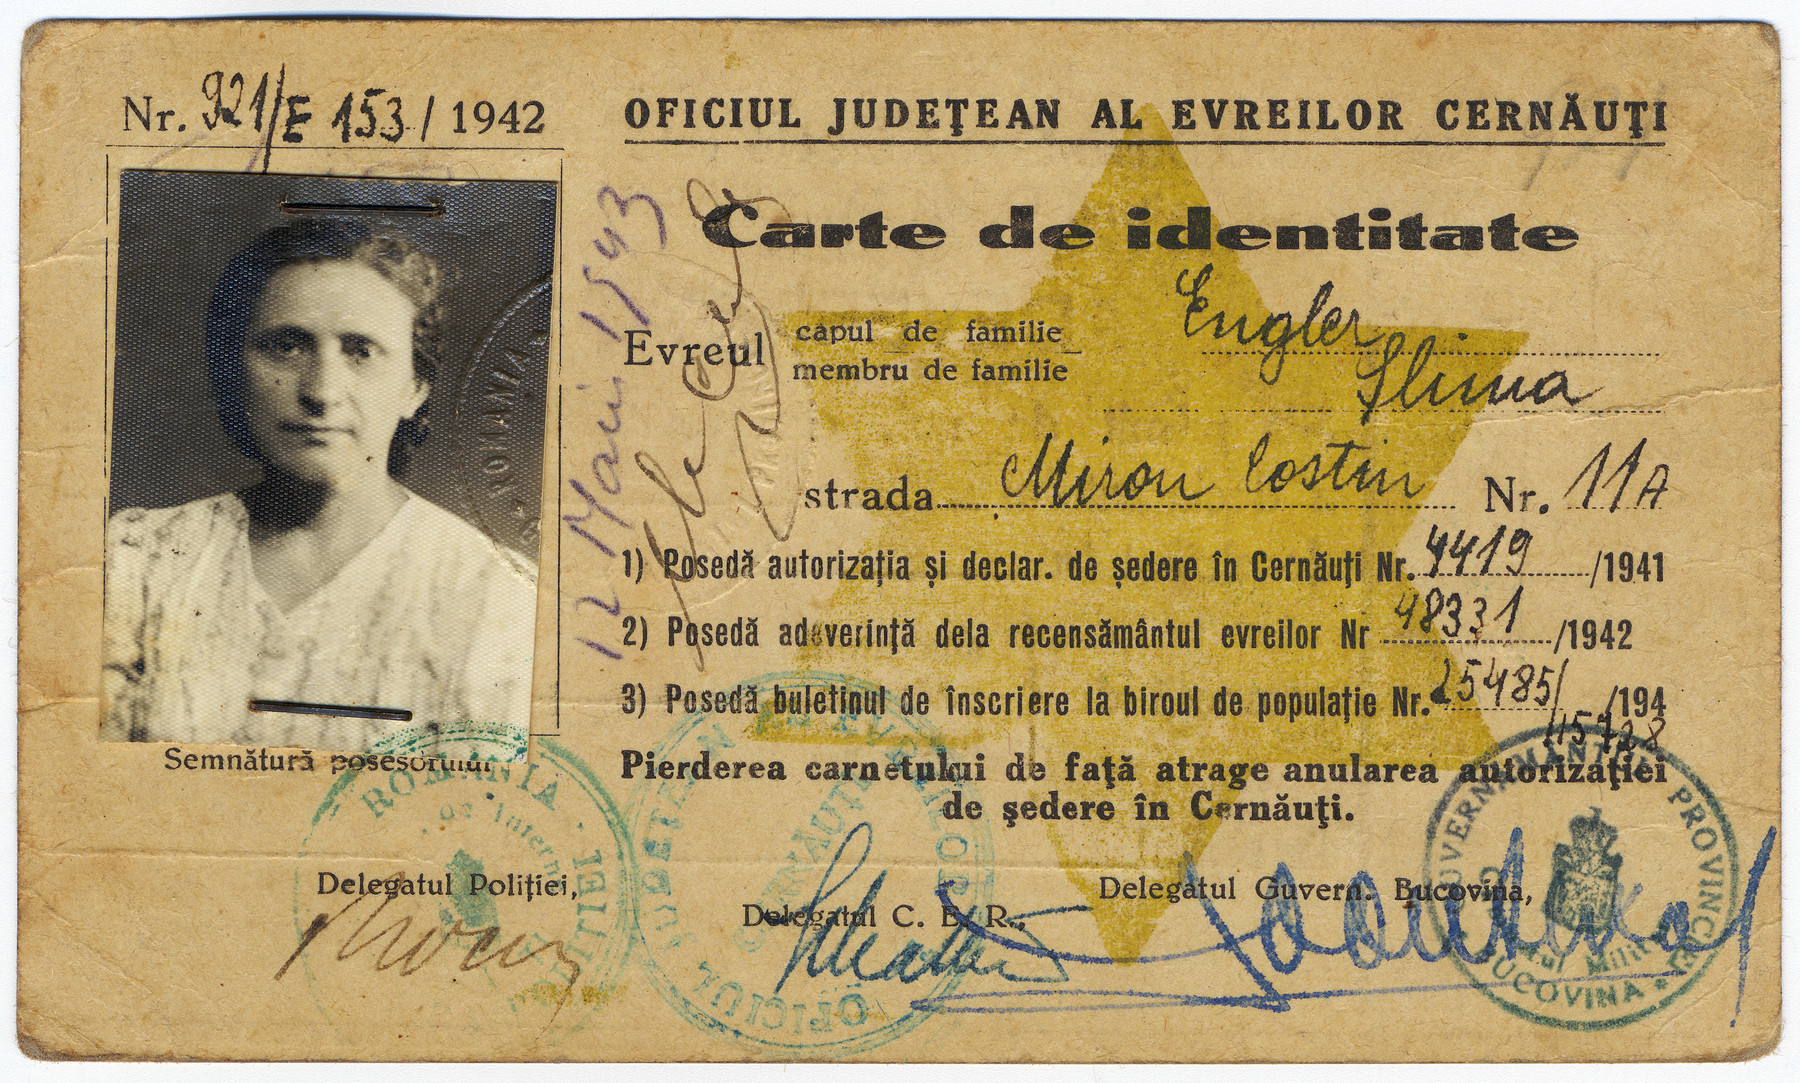 Nr. 921/E 153/1942
OFICIUL JUDEŢEAN AL EVREILOR CERNĂUŢI
Carte de identitate
Evreul
capul de familie
membru de familie
Engler
Slima
strada Miron Costin Nr. 11A
1) Posedă autorizaţia şi declar. de şedere în Cernăuţi Nr. 4419/1941
2) Posedă adeverinţă dela recensământul evreilor Nr 48331/1942
3) Posedă buletinul de înscriere la biroul de populaţie Nr. 25485/ /194
115728
Pierderea carnetului de faţă atrage anularea autorizaţiei
de şedere în Cernăuţi.
12 1943
ROMANIA
Semnătură posesorului
Delegatul Poliţiei,
Delegatul C. E. R.,
Delegatul Guvern. Bucovina,
ROMANIA
OFICIUL JUDEŢEAN AL EVREILOR
CERNĂUŢI
GUVERNĂMÂNTUL PROVINCIEI
BUCOVINA